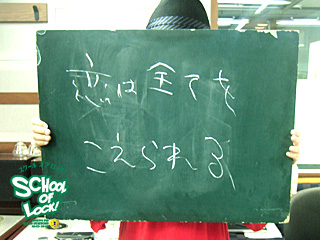 恋は全てを
こえられる
SCHOOL
OF
LOCK!